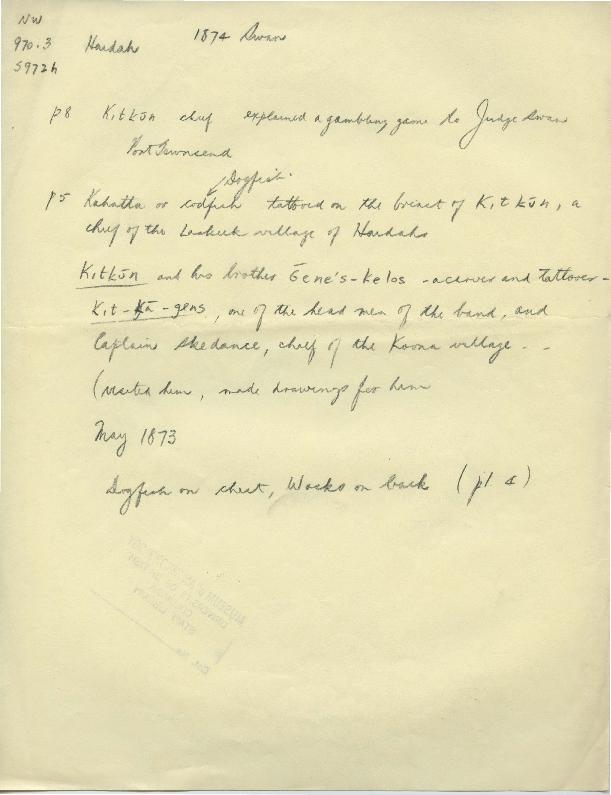 NW
970.3 Haidah 1874 Swan
S972h
p8 Kitkūn chief explained a gambling game to Judge Swan
Port Townsend
Dogfish
p5 Kahatta or codfish tattooed on the breast of Kitkūn, a
chief of the Laskeek village of Haidahs
Kitkūn and his brother Gēne's-kelos - a carver and tattooer -
Kit-kā-gens, one of the head men of the band, and
Captain Skedance, chief of the Koona village - -
(visited him, made drawings for him
May 1873
Dogfish on chest, Wasko on back (pl. 4)
MUSEUM OF
UNIVERSITY OF